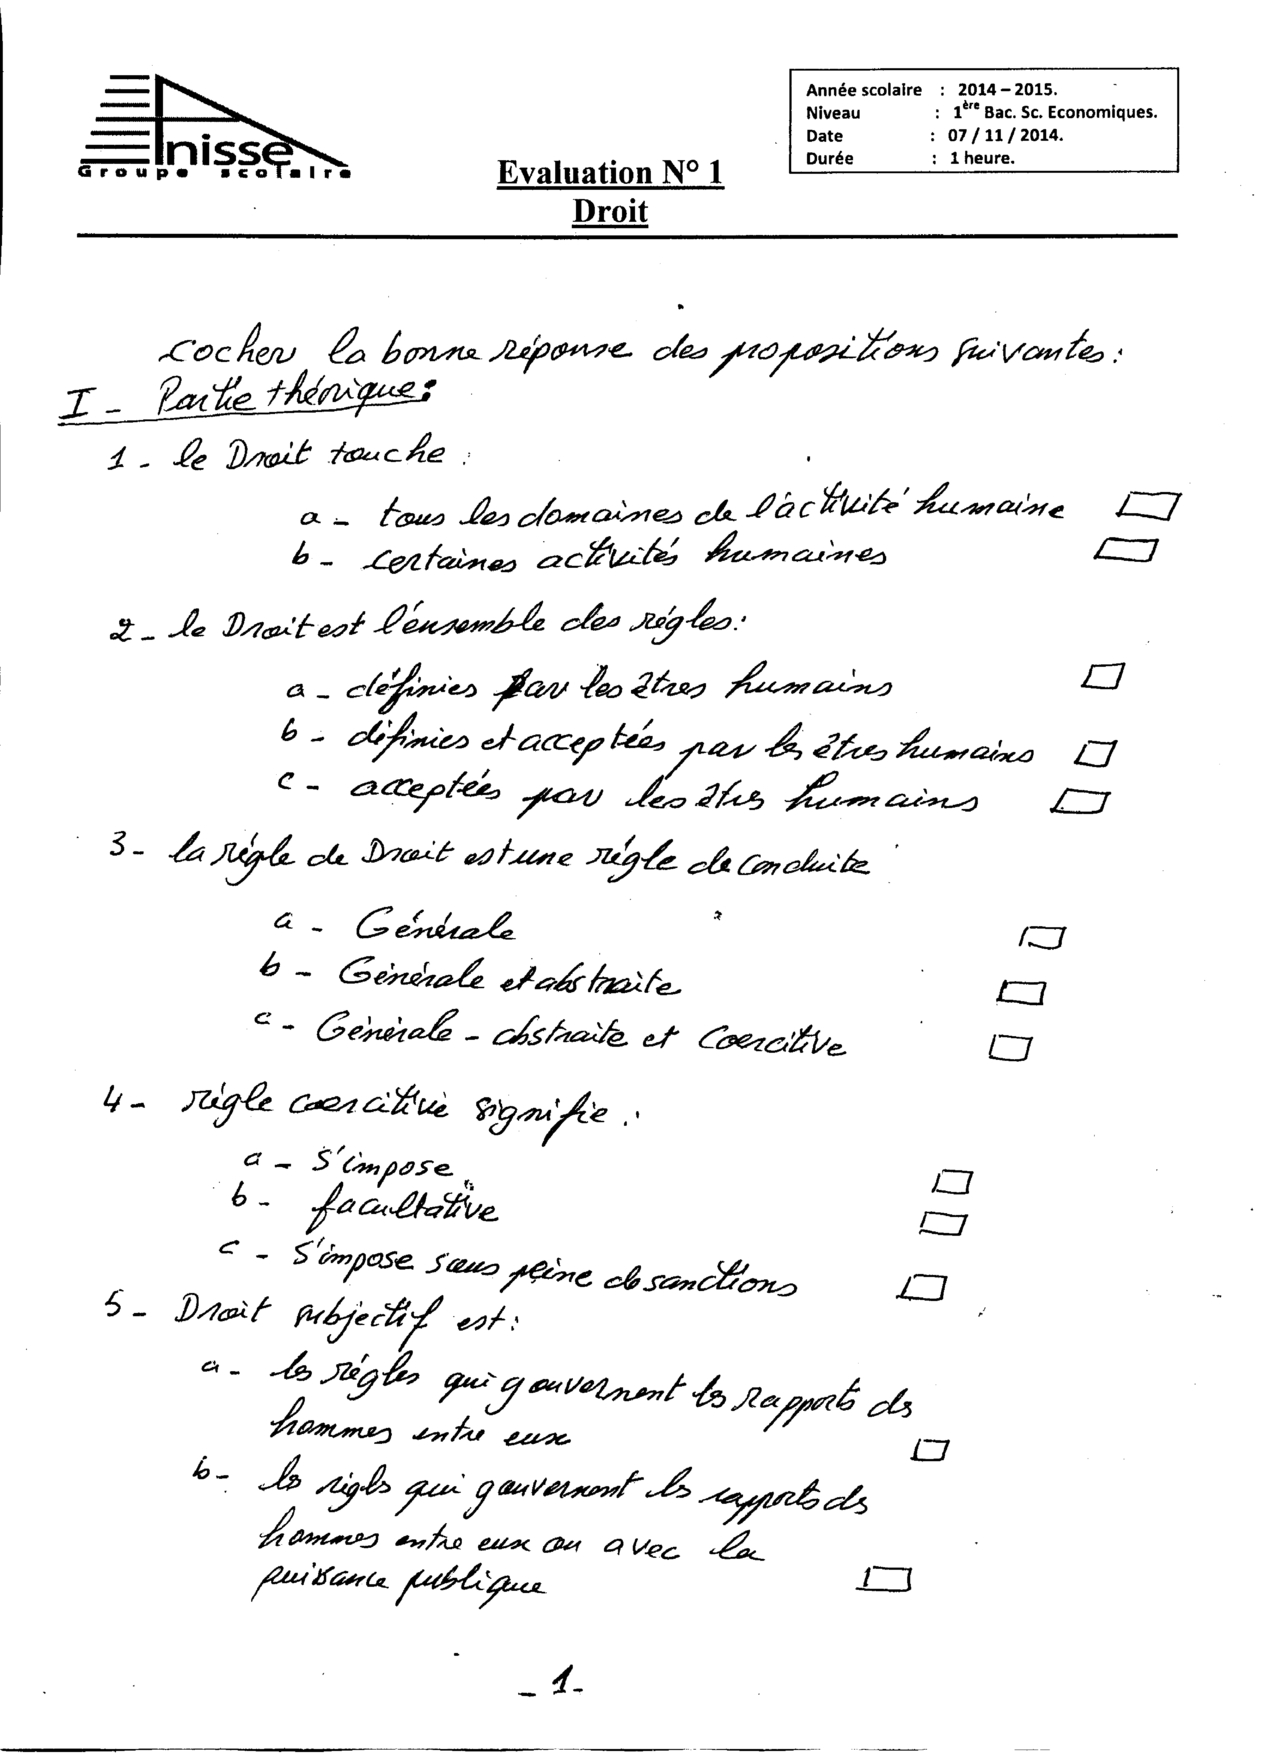 Anisse
Groupe scolaire
Année scolaire : 2014 – 2015.
Niveau : 1ère Bac. Sc. Economiques.
Date : 07 / 11 / 2014.
Durée : 1 heure.
Evaluation N° 1
Droit
cocher la bonne réponse des propositions suivantes :
I - Partie théorique :
1 - le Droit touche :
a - tous les domaines de l'activité humaine
b - certaines activités humaines
2 - le Droit est l'ensemble des régles :
a - définies par les êtres humains
b - définies et acceptées par les êtres humains
c - acceptées par les êtres humains
3 - la régle de Droit est une régle de conduite
a - Générale
b - Générale et abstraite
c - Générale - abstraite et Coercitive
4 - régle coercitive signifie :
a - s'impose
b - facultative
c - s'impose sous peine de sanctions
5 - Droit subjectif est :
a - les régles qui gouvernent les rapports des
hommes entre eux
b - les régles qui gouvernent les rapports des
hommes entre eux ou avec la
puissance publique
- 1 -